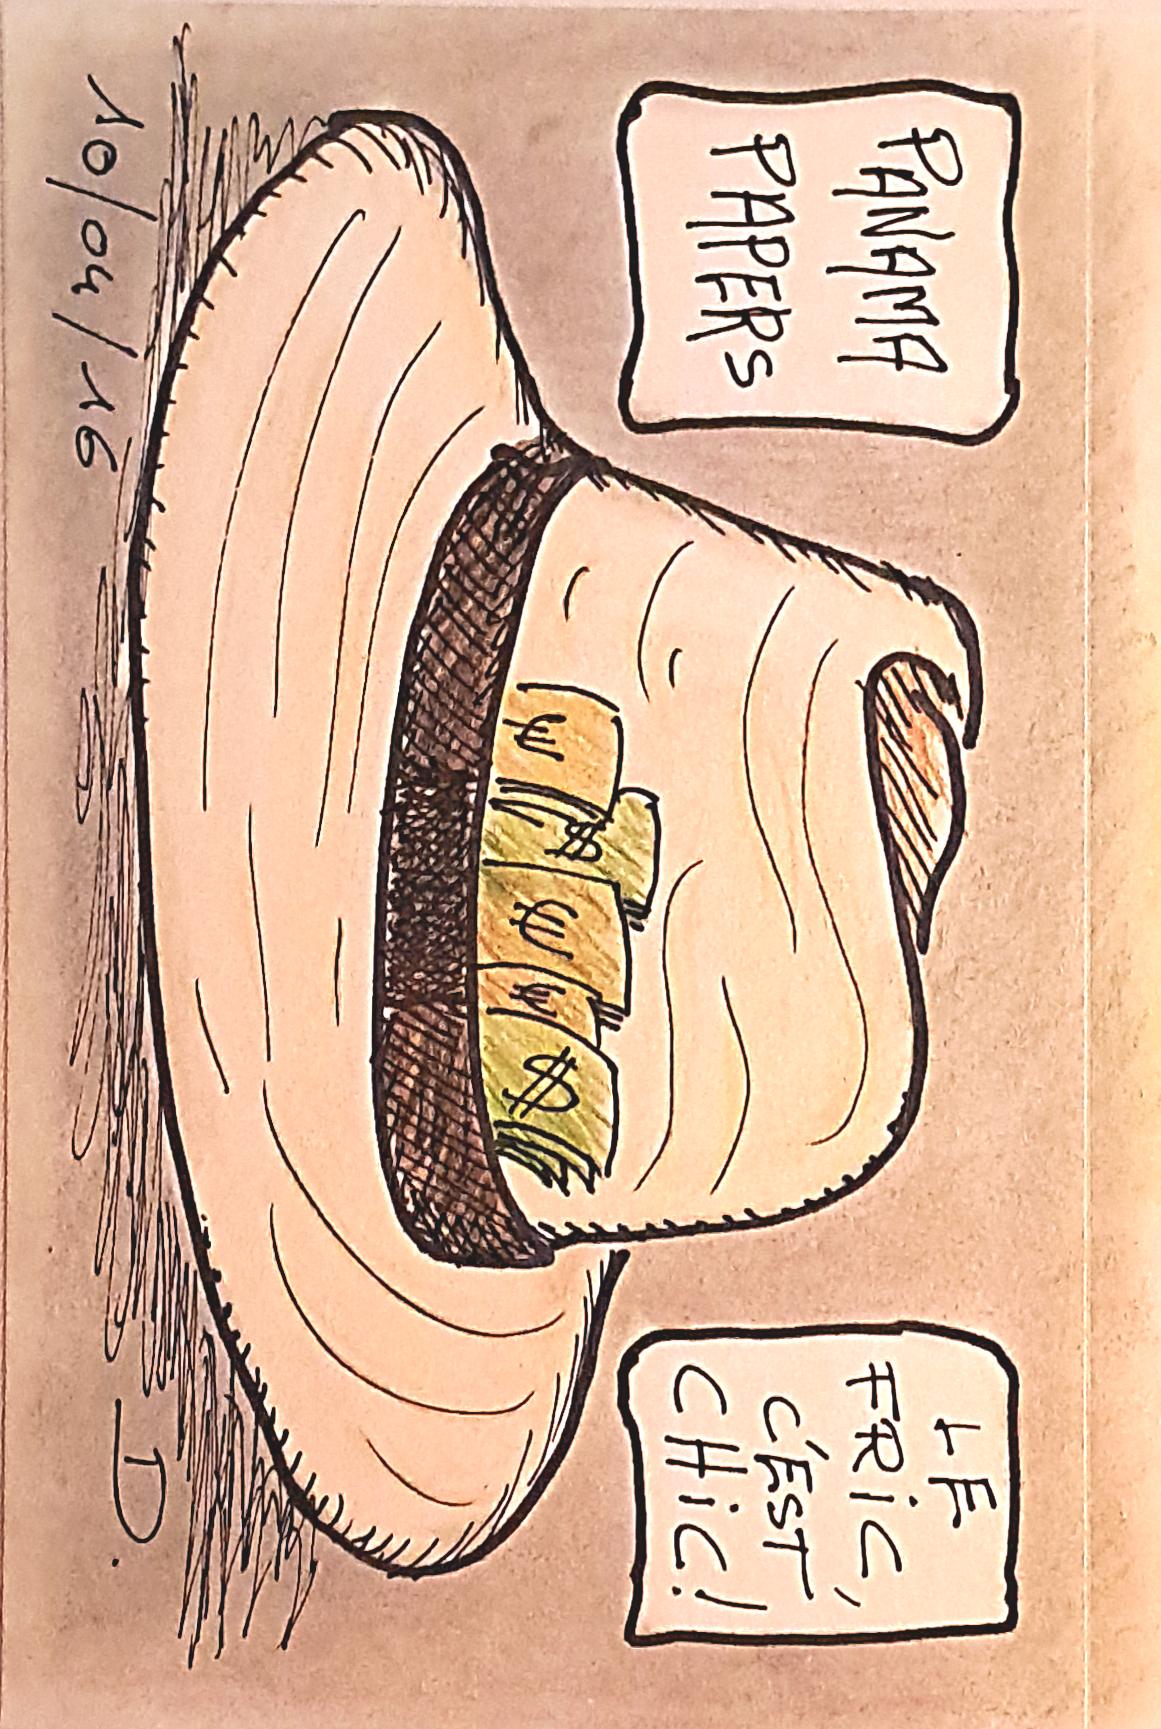 PANAMA
PAPERS
LE
FRiC,
C'EST
CHiC!
€
$
€
€
$
10/04/16
D.